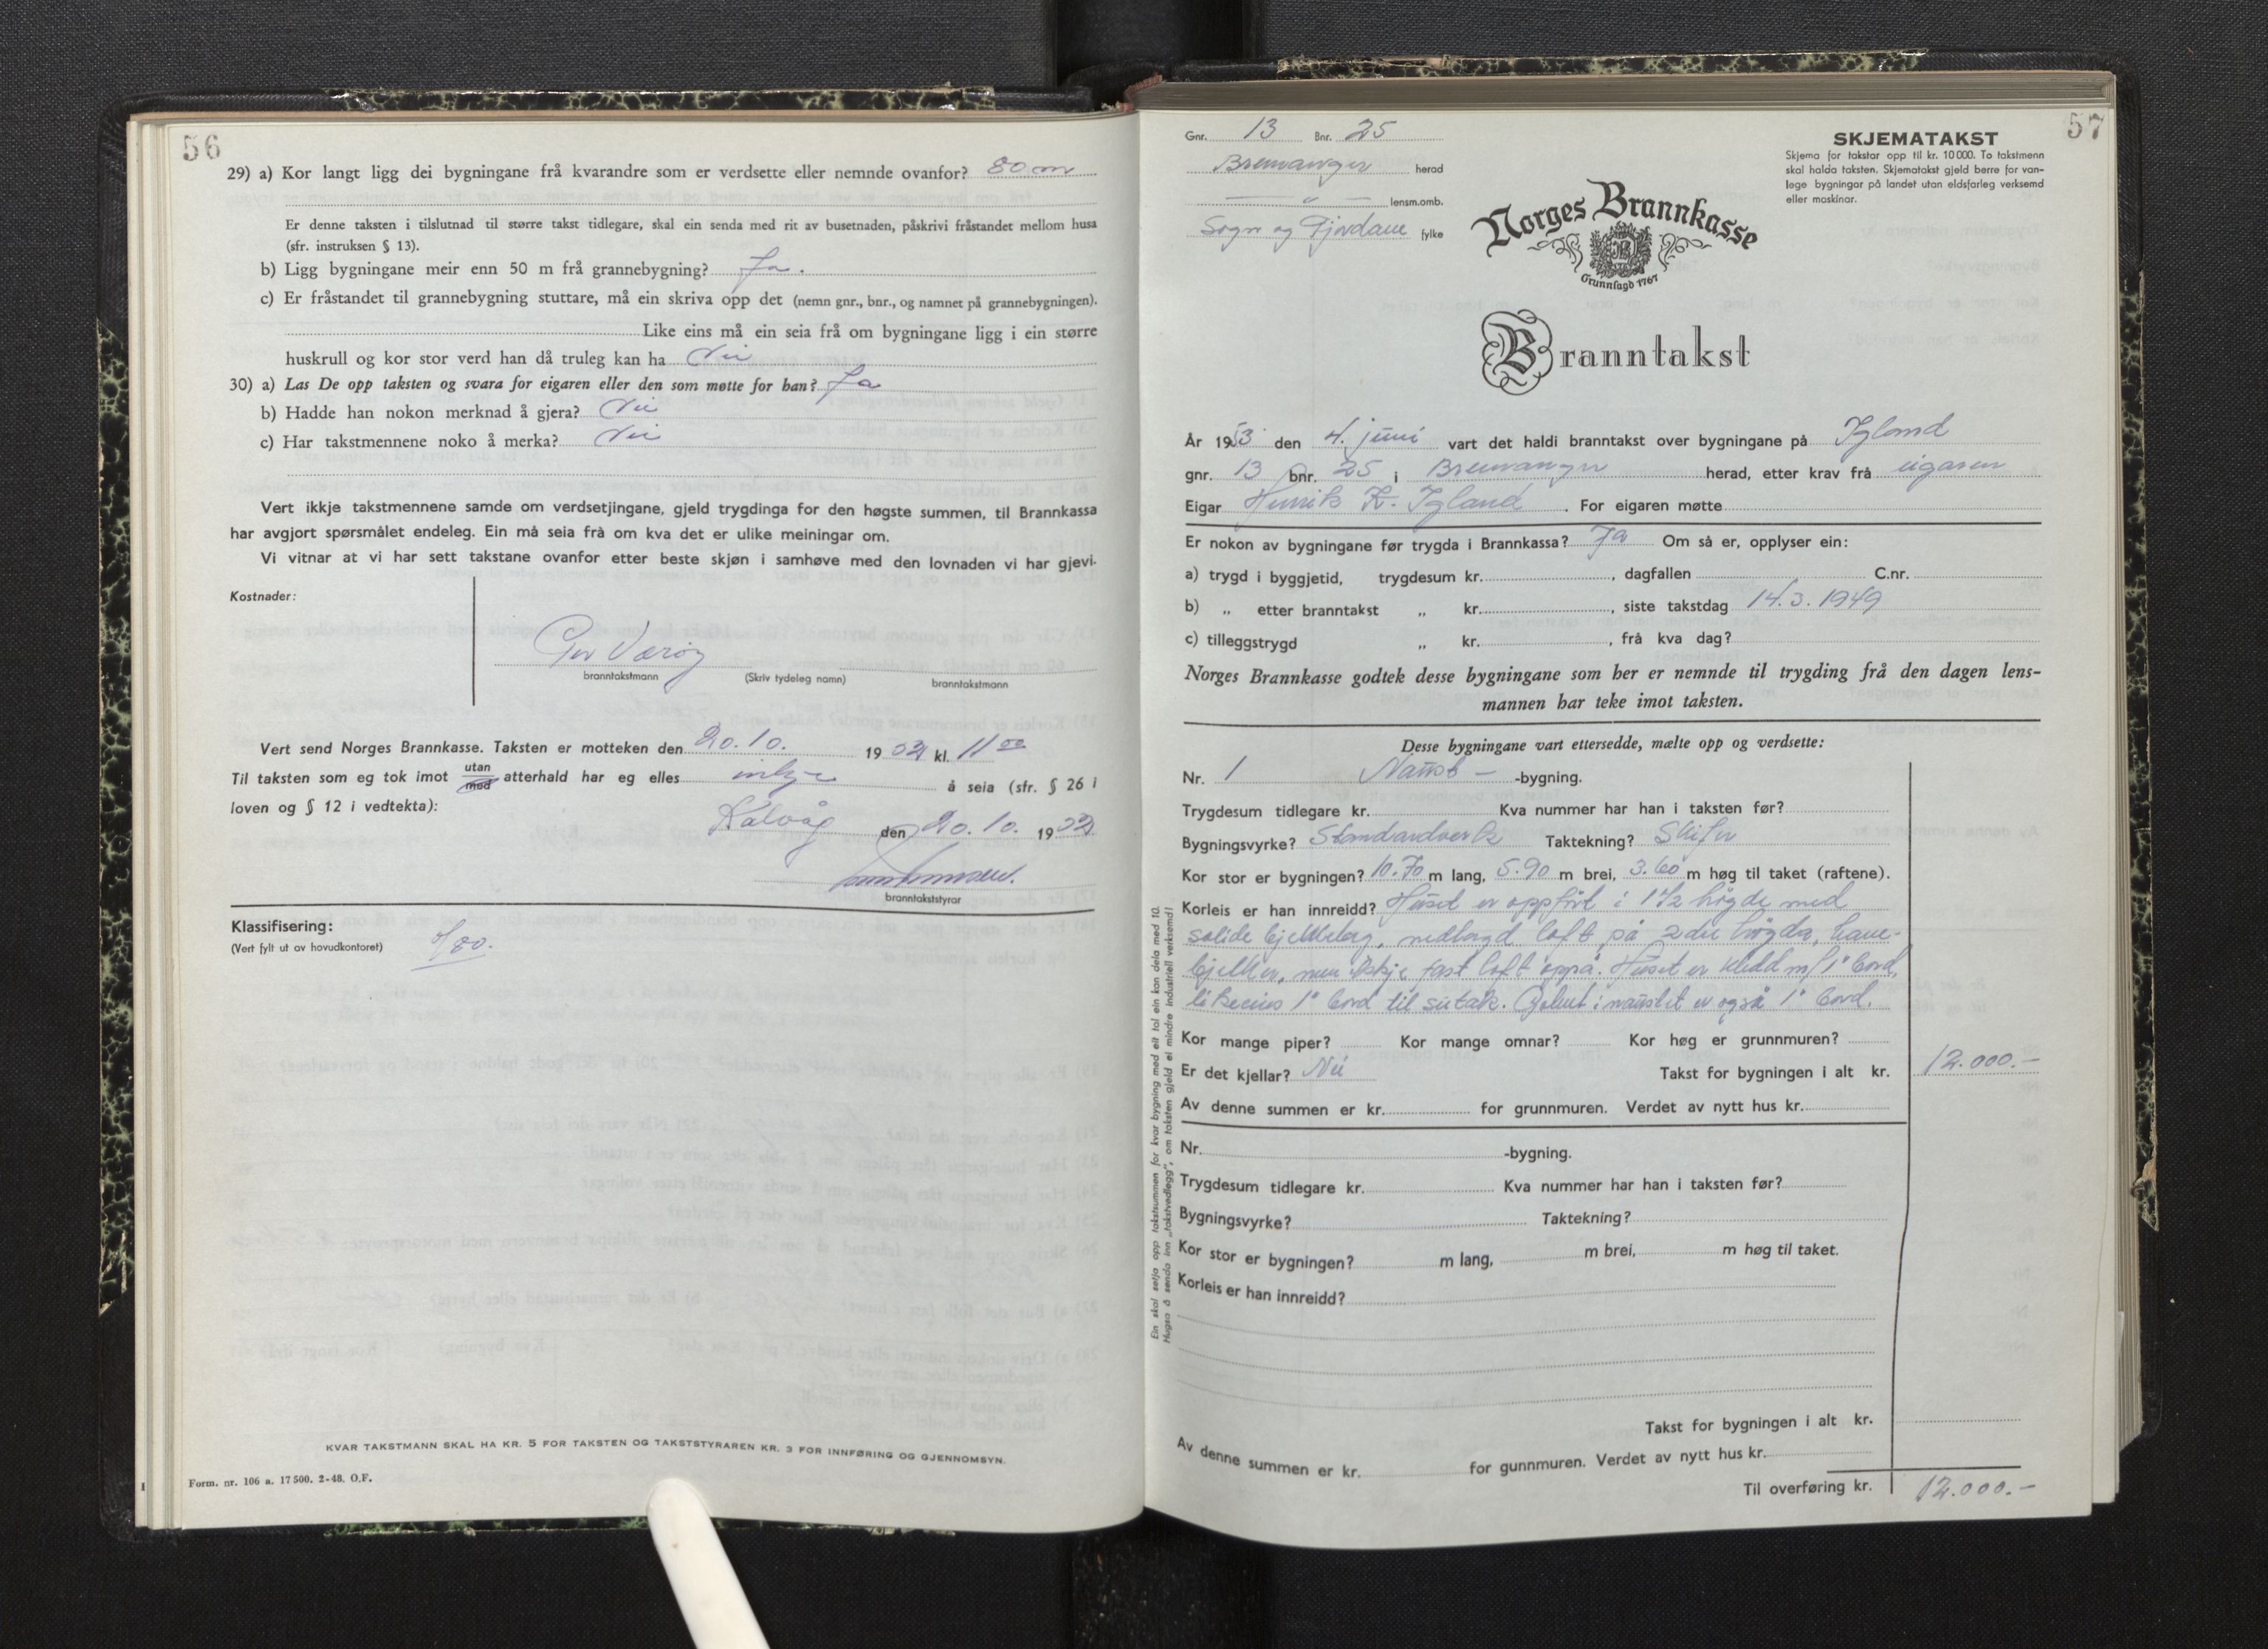 56
29) a) Kor langt ligg dei bygningane frå kvarandre som er verdsette eller nemnde ovanfor? 80 m
Er denne taksten i tilslutnad til større takst tidlegare, skal ein senda med rit av busetnaden, påskrivi fråstandet mellom husa
(sfr. instruksen § 13).
b) Ligg bygningane meir enn 50 m frå grannebygning? Ja.
c) Er fråstandet til grannebygning stuttare, må ein skriva opp det (nemn gnr., bnr., og namnet på grannebygningen).
Like eins må ein seia frå om bygningane ligg i ein større
huskrull og kor stor verd han då truleg kan ha Nei
30) a) Las De opp taksten og svara for eigaren eller den som møtte for han? Ja
b) Hadde han nokon merknad å gjera? Nei
c) Har takstmennene noko å merka? Nei
Vert ikkje takstmennene samde om verdsetjingane, gjeld trygdinga for den høgste summen, til Brannkassa
har avgjort spørsmålet endeleg. Ein må seia frå om kva det er ulike meiningar om.
Vi vitnar at vi har sett takstane ovanfor etter beste skjøn i samhøve med den lovnaden vi har gjevi.
Kostnader:
Per Værøy
branntakstmann (Skriv tydeleg namn) branntakstmann
Vert send Norges Brannkasse. Taksten er motteken den 20.10. 19 kl. 11 00
Til taksten som eg tok imot utan/med atterhald har eg elles inkje å seia (sfr. § 26 i
loven og § 12 i vedtekta):
Kalvåg den 20.10. 19
branntakststyrar
Klassifisering:
(Vert fylt ut av hovudkontoret)
KVAR TAKSTMANN SKAL HA KR. 5 FOR TAKSTEN OG TAKSTSTYRAREN KR. 3 FOR INNFØRING OG GJENNOMSYN.
Form. nr. 106 a. 17 500. 2-48. O.F.
57
Gnr. 13 Bnr. 25
Bremanger herad
— „ — lensm.omb.
Sogn og Fjordane fylke
SKJEMATAKST
Skjema for takstar opp til kr. 10 000. To takstmenn
skal halda taksten. Skjematakst gjeld berre for van-
lege bygningar på landet utan eldsfarleg verksemd
eller maskinar.
Norges Brannkasse
Grunnlagd 1767
Branntakst
År 1953 den 4. juni vart det haldi branntakst over bygningane på Igland
gnr. 13 bnr. 25 i Bremanger herad, etter krav frå eigaren
Eigar Henrik K. Igland . For eigaren møtte
Er nokon av bygningane før trygda i Brannkassa? Ja Om så er, opplyser ein:
a) trygd i byggjetid, trygdesum kr. , dagfallen C.nr.
b) „ etter branntakst „ kr. , siste takstdag 14.3.1949
c) tilleggstrygd „ kr. , frå kva dag?
Norges Brannkasse godtek desse bygningane som her er nemnde til trygding frå den dagen lens-
mannen har teke imot taksten.
Desse bygningane vart ettersedde, mælte opp og verdsette:
Nr. 1 Naust – -bygning.
Trygdesum tidlegare kr. Kva nummer har han i taksten før?
Bygningsvyrke? Standardverk Taktekning? Skifer
Kor stor er bygningen? 10.70 m lang, 5.90 m brei, 3.60 m høg til taket (raftene).
Korleis er han innreidd? Huset er oppført i 1 1/2 høgde med
solide bjelkelag, nedlagd loft på 2dre høgda, hane-
bjelker, men ikkje fast loft oppå. Huset er kledd m/ 1" bord,
likeeins 1" bord til sutak. Golvet i naustet er også 1" bord.
Kor mange piper? Kor mange omnar? Kor høg er grunnmuren?
Er det kjellar? Nei Takst for bygningen i alt kr. 12.000.–
Av denne summen er kr. for grunnmuren. Verdet av nytt hus kr.
Nr. -bygning.
Trygdesum tidlegare kr. Kva nummer har han i taksten før?
Bygningsvyrke? Taktekning?
Kor stor er bygningen? m lang, m brei, m høg til taket.
Korleis er han innreidd?
Takst for bygningen i alt kr.
Av denne summen er kr. for gunnmuren. Verdet av nytt hus kr.
Til overføring kr. 12.000.–
Ein skal setja opp takstsummen for kvar bygning med eit tal ein kan dela med 10.
Hugsa å senda inn „takstvedlegg", om taksten gjeld ei mindre industriell verksemd!